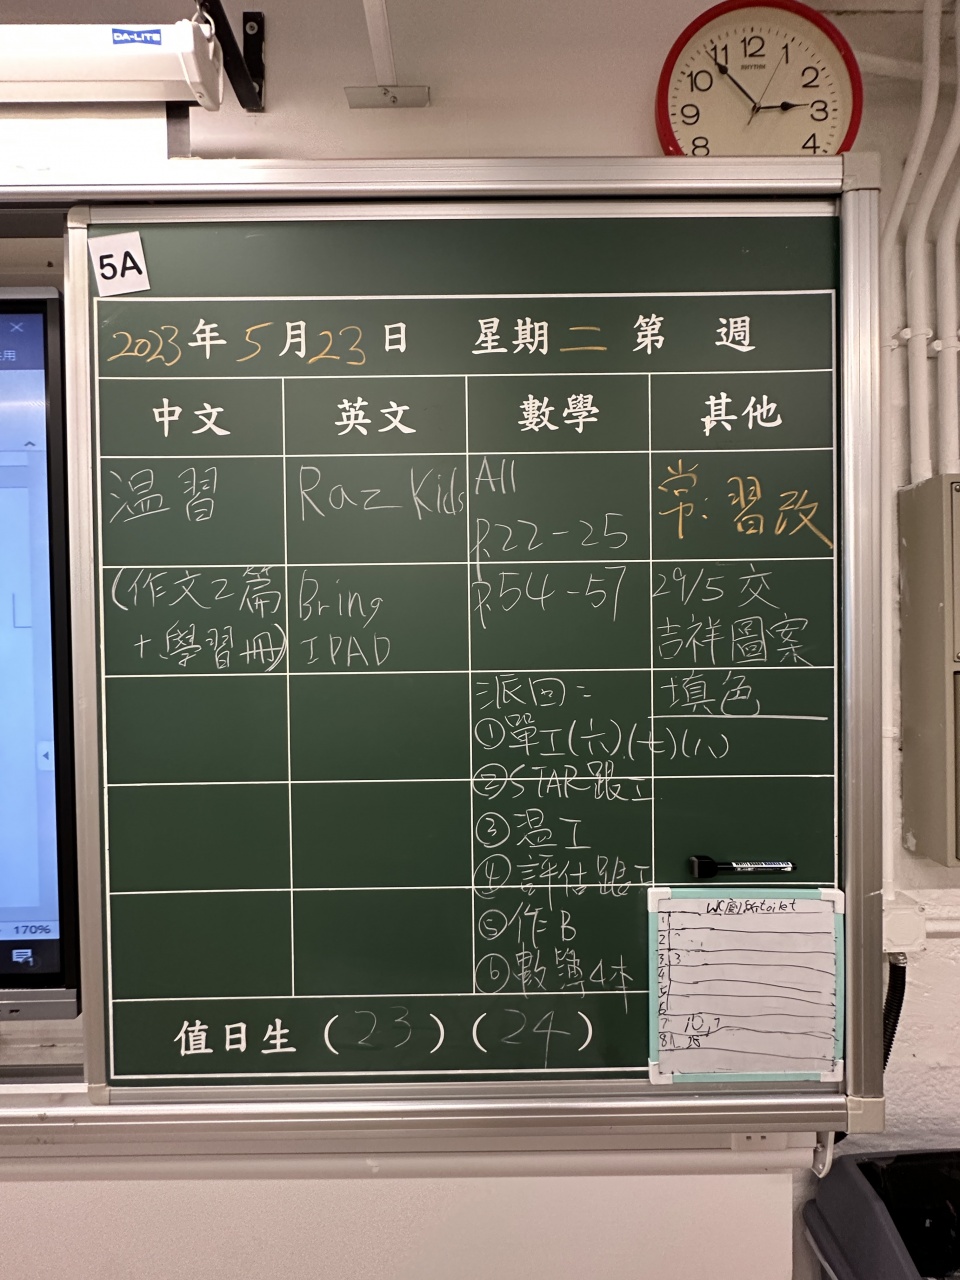 DA-LITE
11 12 1
10 2
RHYTHM
9 3
8 4
5A
用
2023年5月23日 星期二 第 週
中文 英文 數學 其他
溫習
(作文2篇
+學習冊)
Raz Kids
Bring
IPAD
All
P.22-25
P.54-57
派回:
①單工(六)(七)(八)
②STAR跟工
③溫工
④評估跟工
⑤作B
⑥數簿4本
常:習改
29/5 交
吉祥圖案
填色
WHITE BOARD MARKER PEN
170%
toilet
1
2
3 3
4
5
6
7 10,7
8
值日生(23)(24)